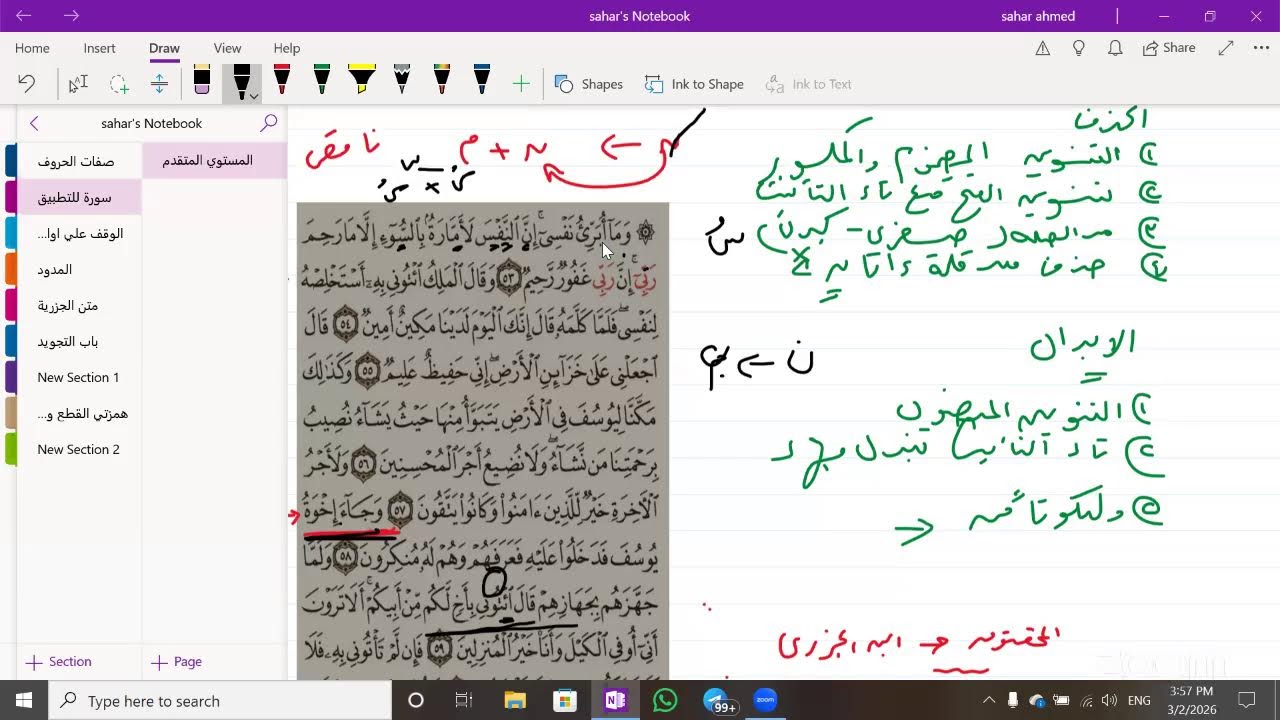 sahar's Notebook
sahar ahmed
Home Insert Draw View Help
Share
Shapes
Ink to Shape
Ink to Text
sahar's Notebook
صفات الحروف
سورة للتطبيق
الوقف علي اوا...
المدود
متن الجزرية
باب التجويد
New Section 1
همزتي القطع و...
New Section 2
المستوي المتقدم
+ Section
+ Page
ناقص م + ن ← ن
۞ وَمَآ أُبَرِّئُ نَفْسِىٓ ۚ إِنَّ ٱلنَّفْسَ لَأَمَّارَةٌۢ بِٱلسُّوٓءِ إِلَّا مَا رَحِمَ
رَبِّىٓ ۚ إِنَّ رَبِّى غَفُورٌ رَّحِيمٌ ٥٣ وَقَالَ ٱلْمَلِكُ ٱئْتُونِى بِهِۦٓ أَسْتَخْلِصْهُ
لِنَفْسِى ۖ فَلَمَّا كَلَّمَهُۥ قَالَ إِنَّكَ ٱلْيَوْمَ لَدَيْنَا مَكِينٌ أَمِينٌ ٥٤ قَالَ
ٱجْعَلْنِى عَلَىٰ خَزَآئِنِ ٱلْأَرْضِ ۖ إِنِّى حَفِيظٌ عَلِيمٌ ٥٥ وَكَذَٰلِكَ
مَكَّنَّا لِيُوسُفَ فِى ٱلْأَرْضِ يَتَبَوَّأُ مِنْهَا حَيْثُ يَشَآءُ ۚ نُصِيبُ
بِرَحْمَتِنَا مَن نَّشَآءُ ۖ وَلَا نُضِيعُ أَجْرَ ٱلْمُحْسِنِينَ ٥٦ وَلَأَجْرُ
ٱلْـَٔاخِرَةِ خَيْرٌ لِّلَّذِينَ ءَامَنُوا۟ وَكَانُوا۟ يَتَّقُونَ ٥٧ وَجَآءَ إِخْوَةُ
يُوسُفَ فَدَخَلُوا۟ عَلَيْهِ فَعَرَفَهُمْ وَهُمْ لَهُۥ مُنكِرُونَ ٥٨ وَلَمَّا
جَهَّزَهُم بِجَهَازِهِمْ قَالَ ٱئْتُونِى بِأَخٍ لَّكُم مِّنْ أَبِيكُمْ ۚ أَلَا تَرَوْنَ
أَنِّىٓ أُوفِى ٱلْكَيْلَ وَأَنَا۠ خَيْرُ ٱلْمُنزِلِينَ ٥٩ فَإِن لَّمْ تَأْتُونِى بِهِۦ فَلَا
الحذف
① التنوين المضموم والمكسور
② تنوين الفتح مع تاء التأنيث
③ مد الصلة صغرى - كبرى
④ حذف
ن ← م
الابدال
① التنوين المنصوب
② تاء التأنيث تبدل هاء
③ وليكوناً من
ابن الجزرى
ENG
3:57 PM
3/2/2026
Type here to search
zoom
99+